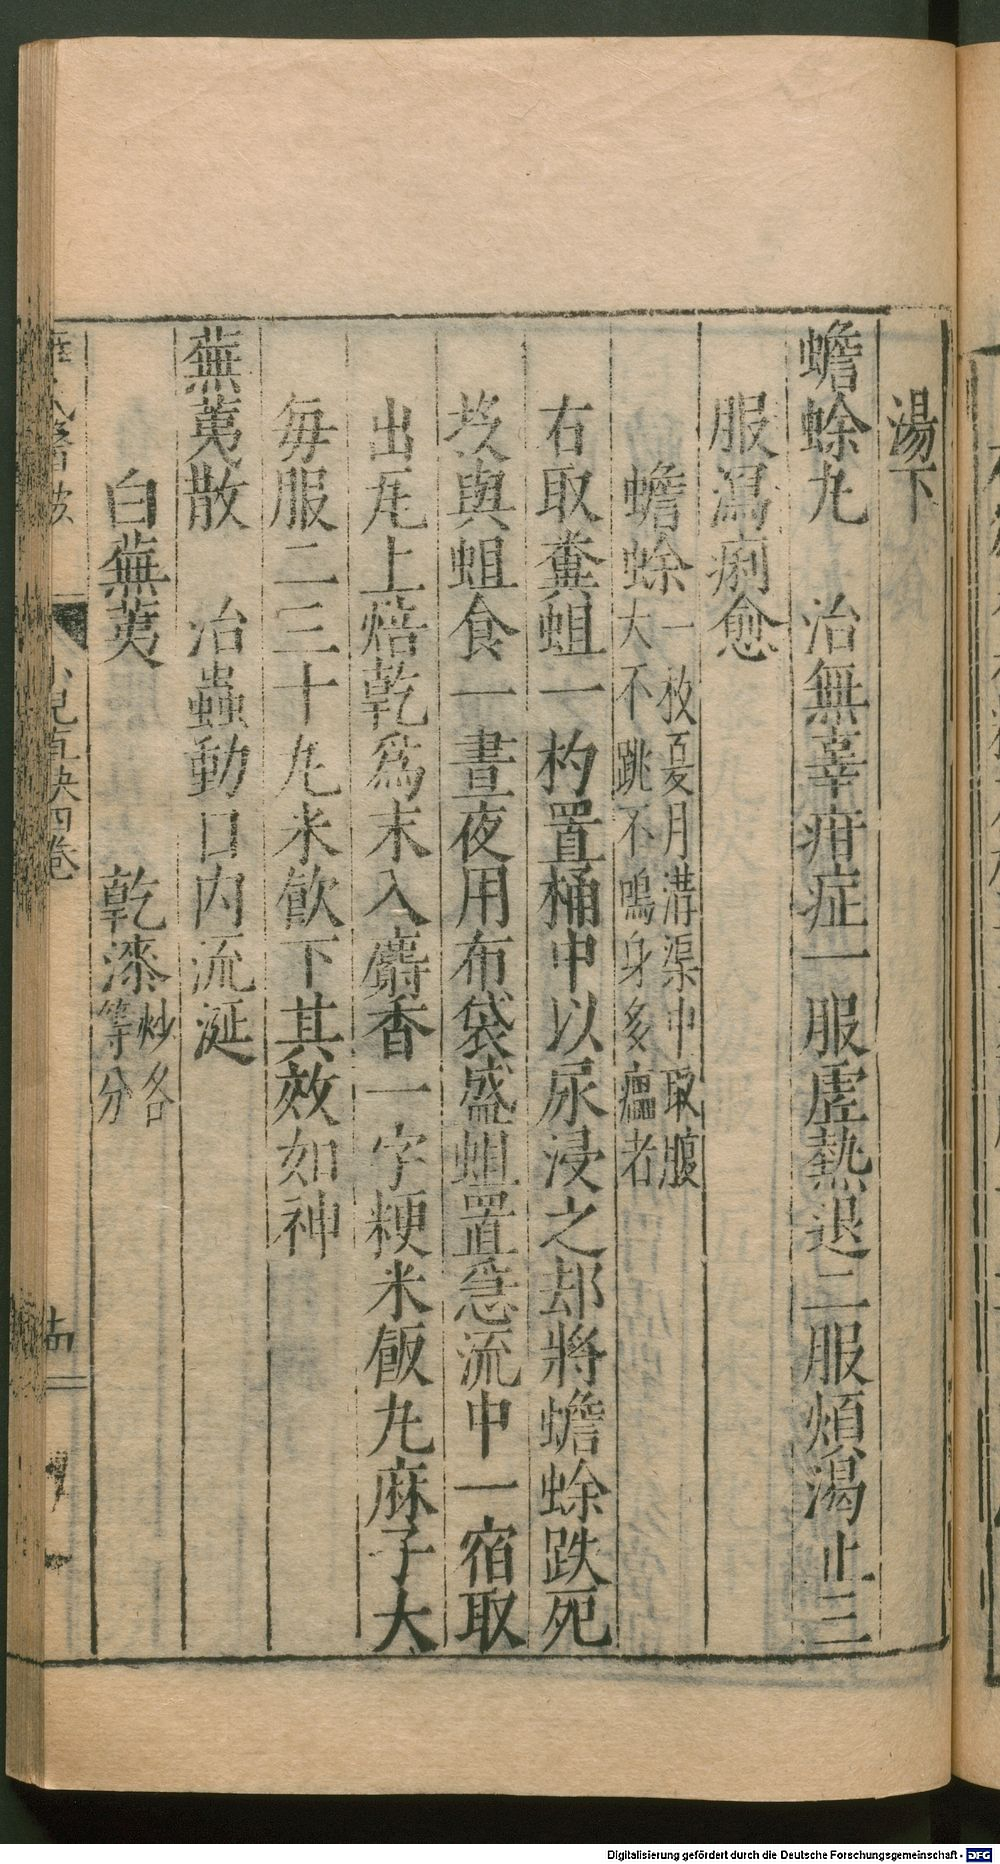 湯下
蟾蜍丸　治無辜疳症一服虛熱退二服煩渴止三
服瀉痢愈
蟾蜍一枚夏月溝渠中取腹
大不跳不鳴身多癟者
右取糞蛆一杓置桶中以尿浸之却將蟾蜍跌死
投與蛆食一晝夜用布袋盛蛆置急流中一宿取
出瓦上焙乾爲末入麝香一字粳米飯丸麻子大
每服二三十丸米飮下其效如神
蕪荑散　治蟲動口内流涎
白蕪荑　乾漆炒各
等分
小兒直訣四卷
Digitalisierung gefördert durch die Deutsche Forschungsgemeinschaft - DFG